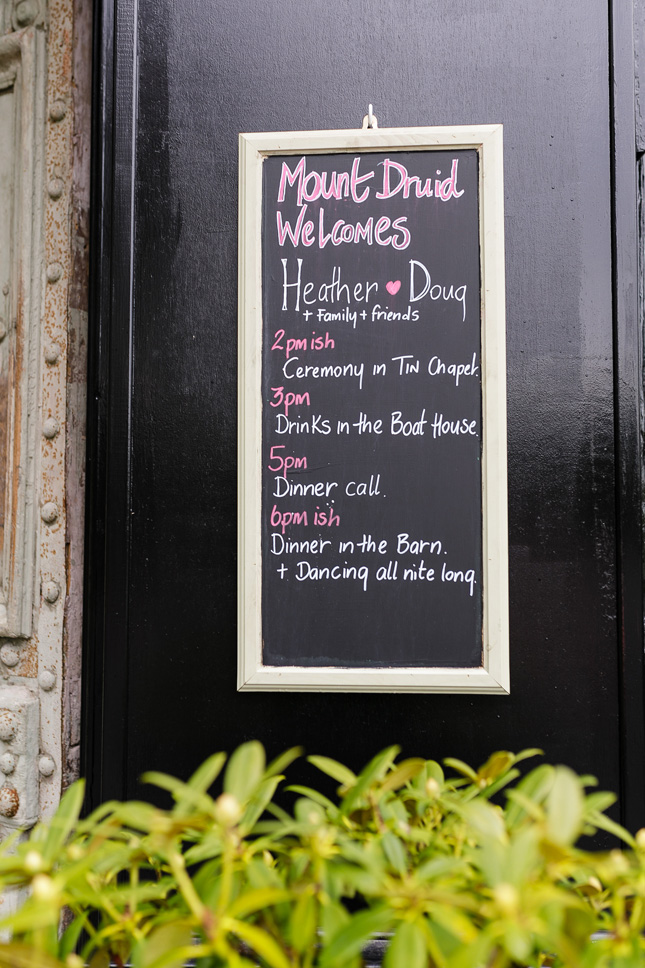 Mount Druid
Welcomes
Heather ♥ Doug
+ Family + friends
2pm ish
Ceremony in TIN Chapel.
3pm
Drinks in the Boat House.
5pm
Dinner call.
6pm ish
Dinner in the Barn.
+ Dancing all nite long.